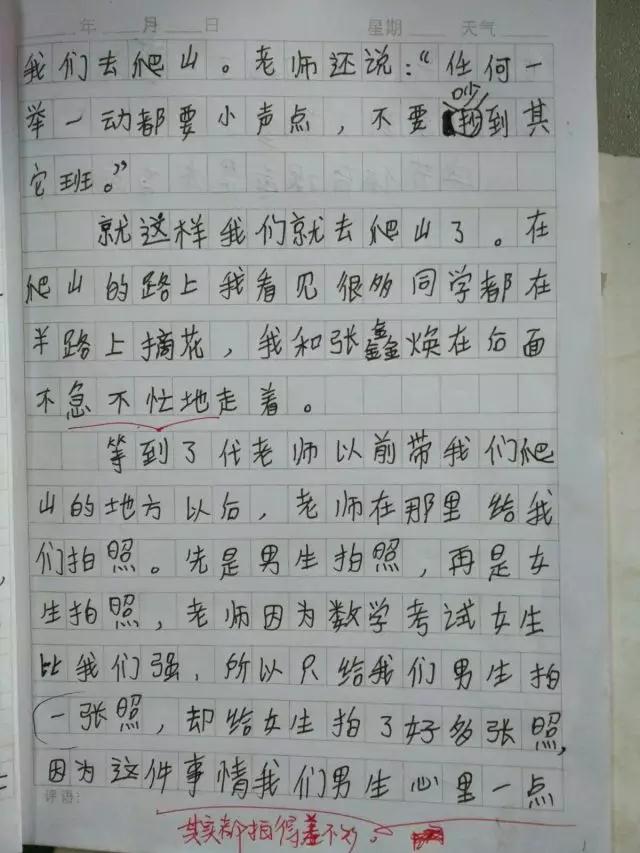 年 月 日 星期 天气
我们去爬山。老师还说：“任何一
吵
举一动都要小声点，不要到其
它班。”
就这样我们就去爬山了。在
爬山的路上我看见很多同学都在
半路上摘花，我和张鑫焕在后面
不急不忙地走着。
等到了代老师以前带我们爬
山的地方以后，老师在那里给我
们拍照。先是男生拍照，再是女
生拍照，老师因为数学考试女生
比我们强，所以只给我们男生拍
一张照，却给女生拍了好多张照，
因为这件事情我们男生心里一点
评语：
其实都拍得差不多。